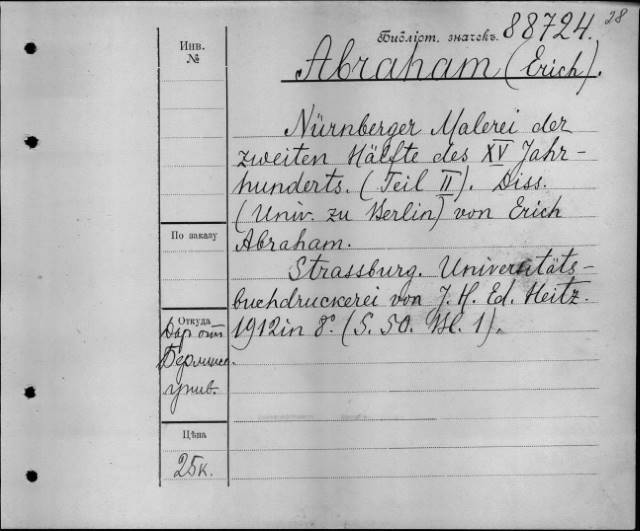 28
Библіот. значекъ. 88724.
Инв.
№
Abraham (Erich).
Nürnberger Malerei der
zweiten Hälfte des XV Jahr-
hunderts. (Teil II). Diss.
(Univ. zu Berlin) von Erich
Abraham.
Strassburg. Universitäts-
buchdruckerei von J. H. Ed. Heitz.
1912 in 8° (S. 50. Bl. 1).
По заказу
Откуда
Дар от
Берлинс.
унив.
Цѣна
25к.